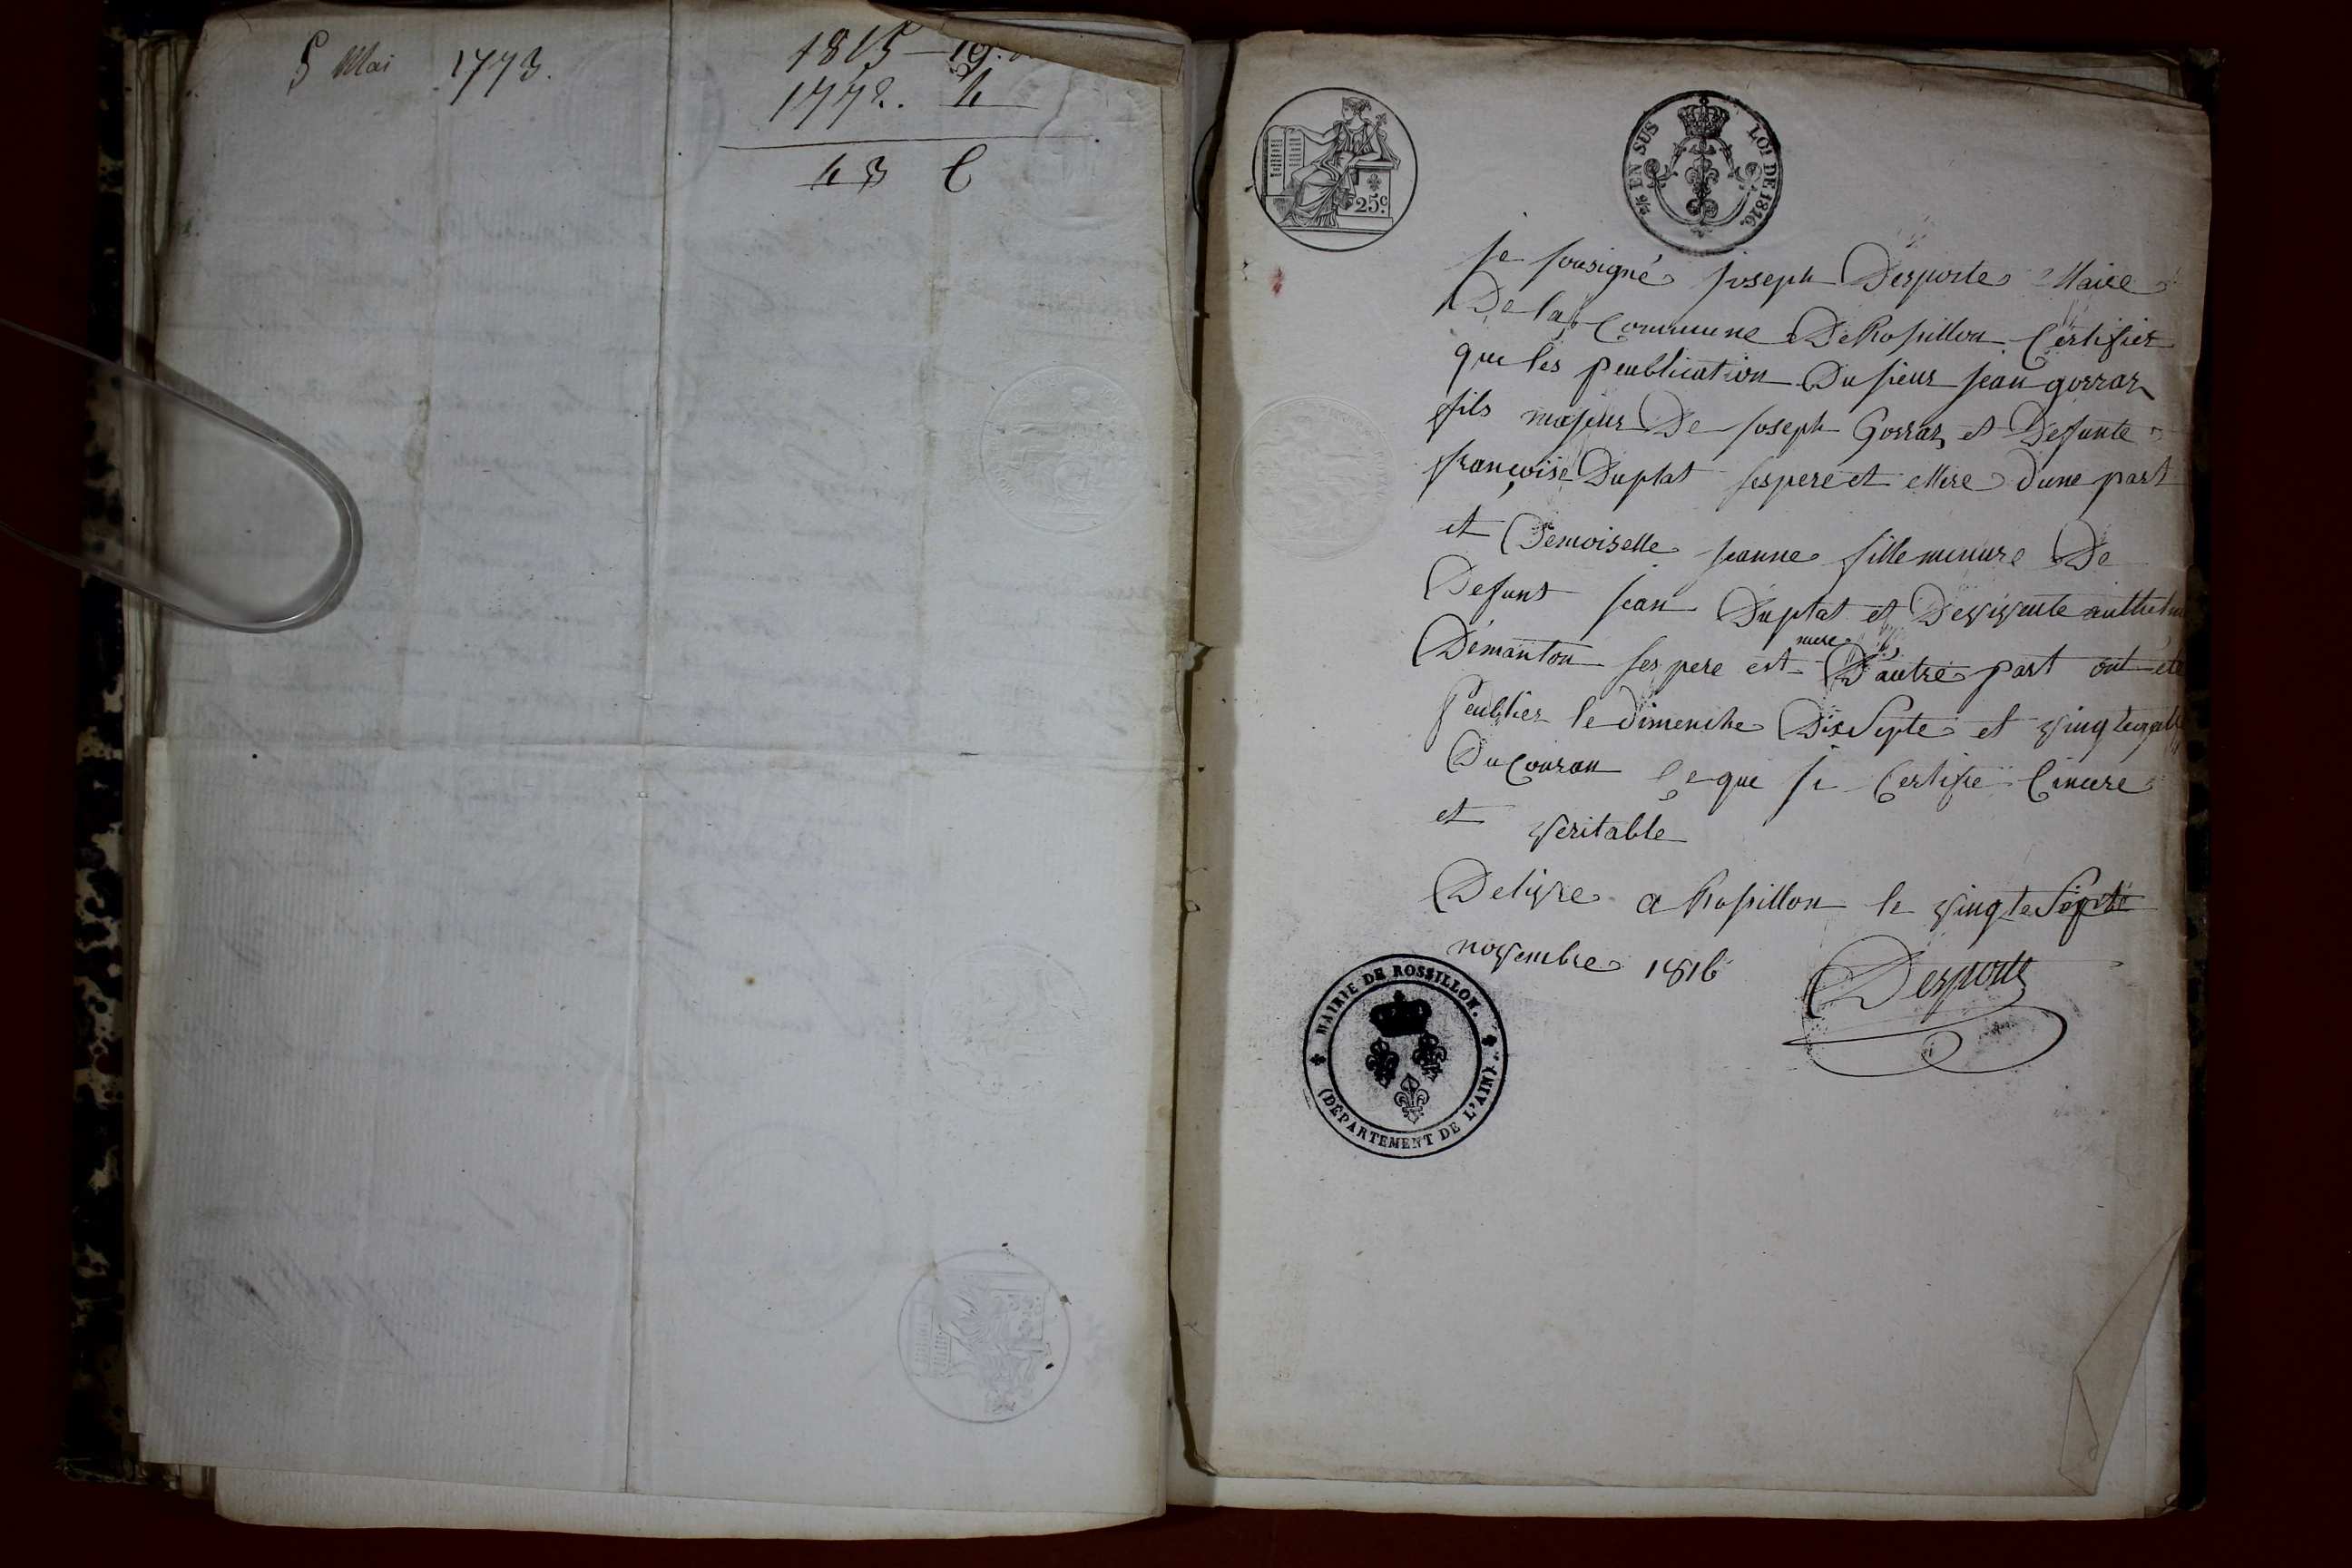 5 Mai 1773.
1815 — 19.
1772. 4
43 8
25c.
EN SUS
LOI DE 1816.
je sousigné joseph Desporte Maire
De la Commune De Rossillon Certifier
que les peublication Du sieur jean gorraz
fils majeur De joseph Gorraz et Defunte
françoise Duplat ses pere et Mere d'une part
et Demoiselle jeanne fille mineure De
Defunt jean Duplat et De vivente anthelm
Demanton ses pere est mere D'autre part ont été
Peublier le dimenche Dix Septe et vingte
Du Couran Ce que je Certifie Cincere
et veritable
Delivre a Rossillon le vingte Septe
novembre 1816
Desporte
MAIRIE DE ROSSILLON.
(DÉPARTEMENT DE L'AIN)